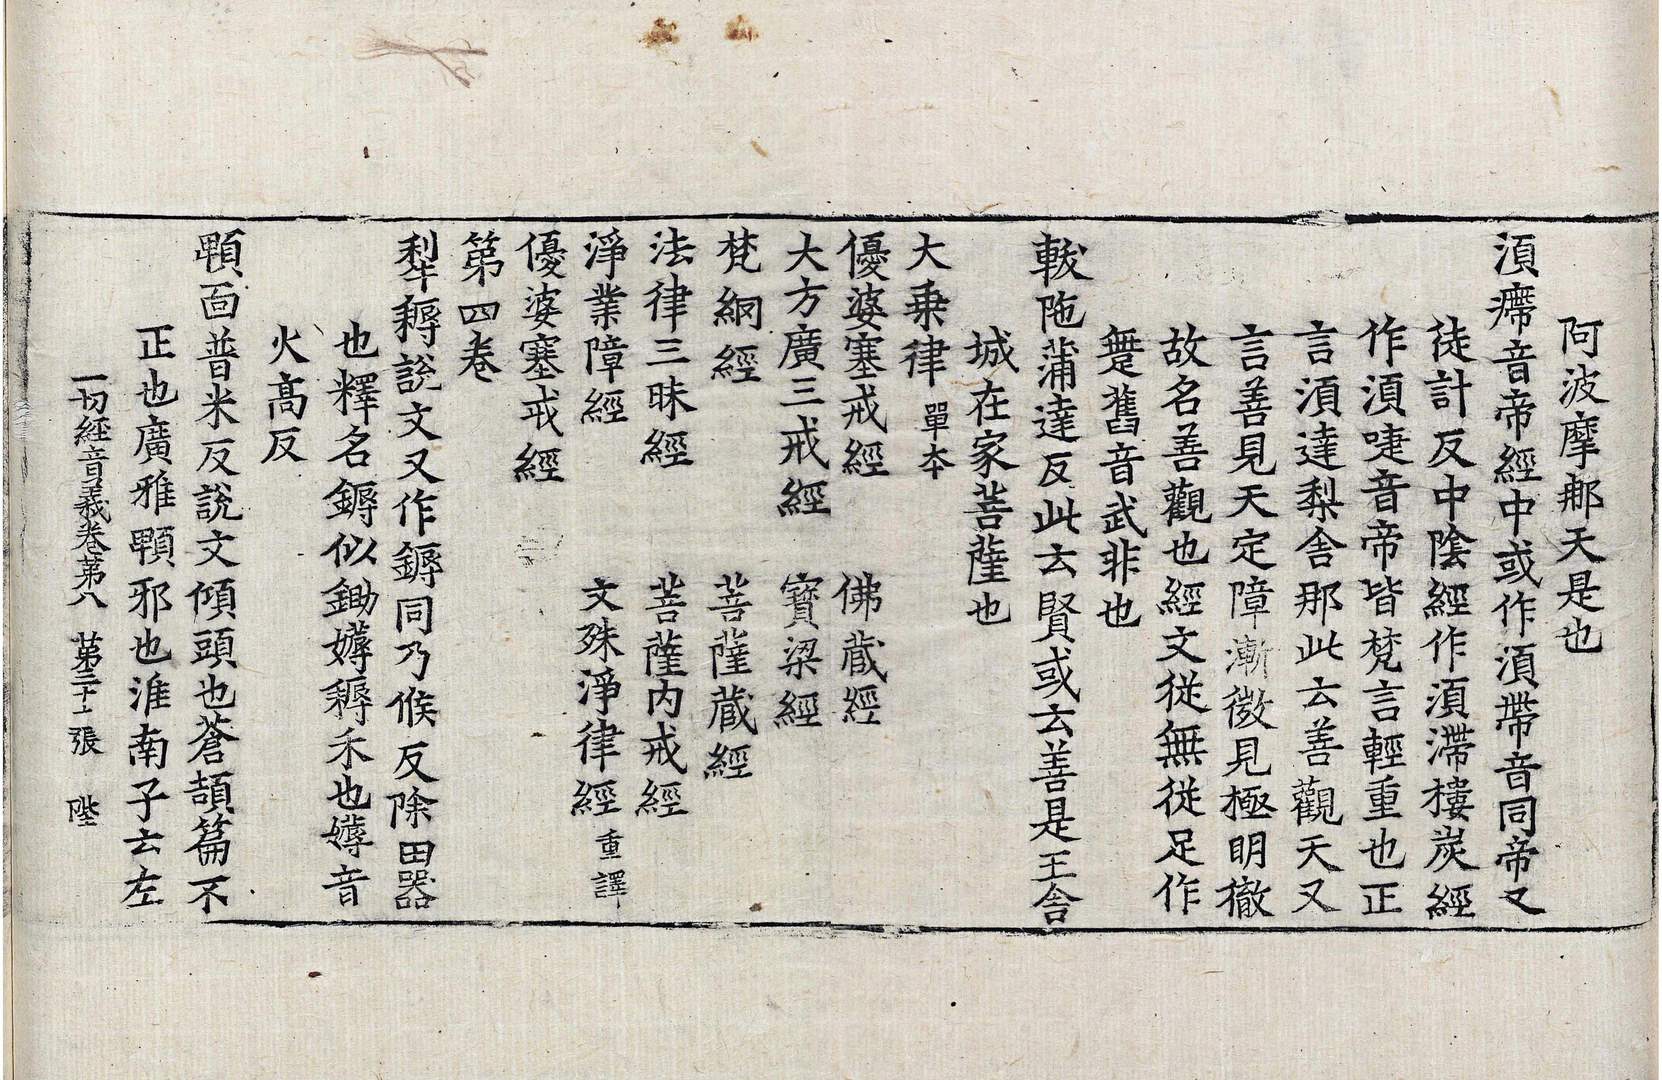 阿波摩那天是也
湏㿃音帝經中或作湏帶音同帝又
徒計反中陰經作湏滯樓炭經
作湏啑音帝皆梵言輕重也正
言湏達梨舍那此云善觀天又
言善見天定障漸微見極明徹
故名善觀也經文從無從足作
䠢舊音武非也
䡊陁蒲達反此云賢或云善是王舍
城在家菩薩也
大乗律 單本
優婆塞戒經 佛藏經
大方廣三戒經 寳梁經
梵網經 菩薩藏經
法律三昧經 菩薩内戒經
淨業障經 文殊淨律經 重譯
優婆塞戒經
第四卷
犁耨說文又作鎒同乃候反除田器
也釋名鎒似鋤嫭耨禾也嫭音
火高反
頔面普米反說文傾頭也蒼頡篇不
正也廣雅頔邪也淮南子云左
一切經音義卷第八 第三十二張 陛